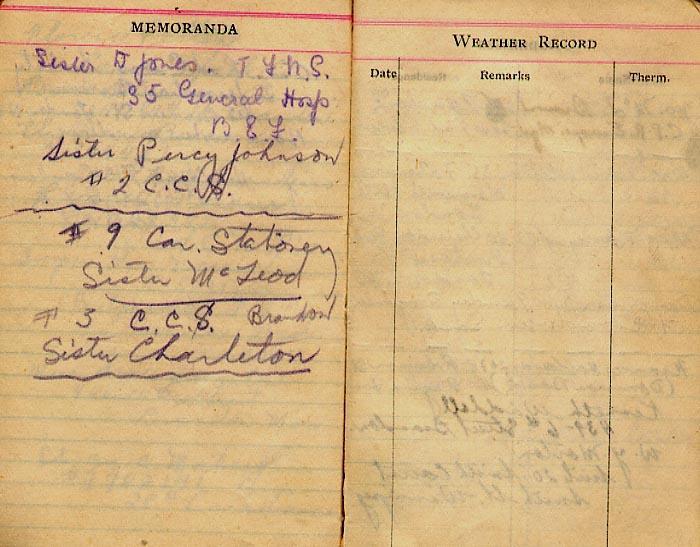 MEMORANDA
Sister D Jones. T.F.N.S.
35 General Hosp
B.E.F.
Sister Percy Johnson
# 2 C.C.S.
# 9 Can. Stationery
Sister McLeod
# 3 C.C.S. Brandon
Sister Charleton
WEATHER RECORD
Date Remarks Therm.